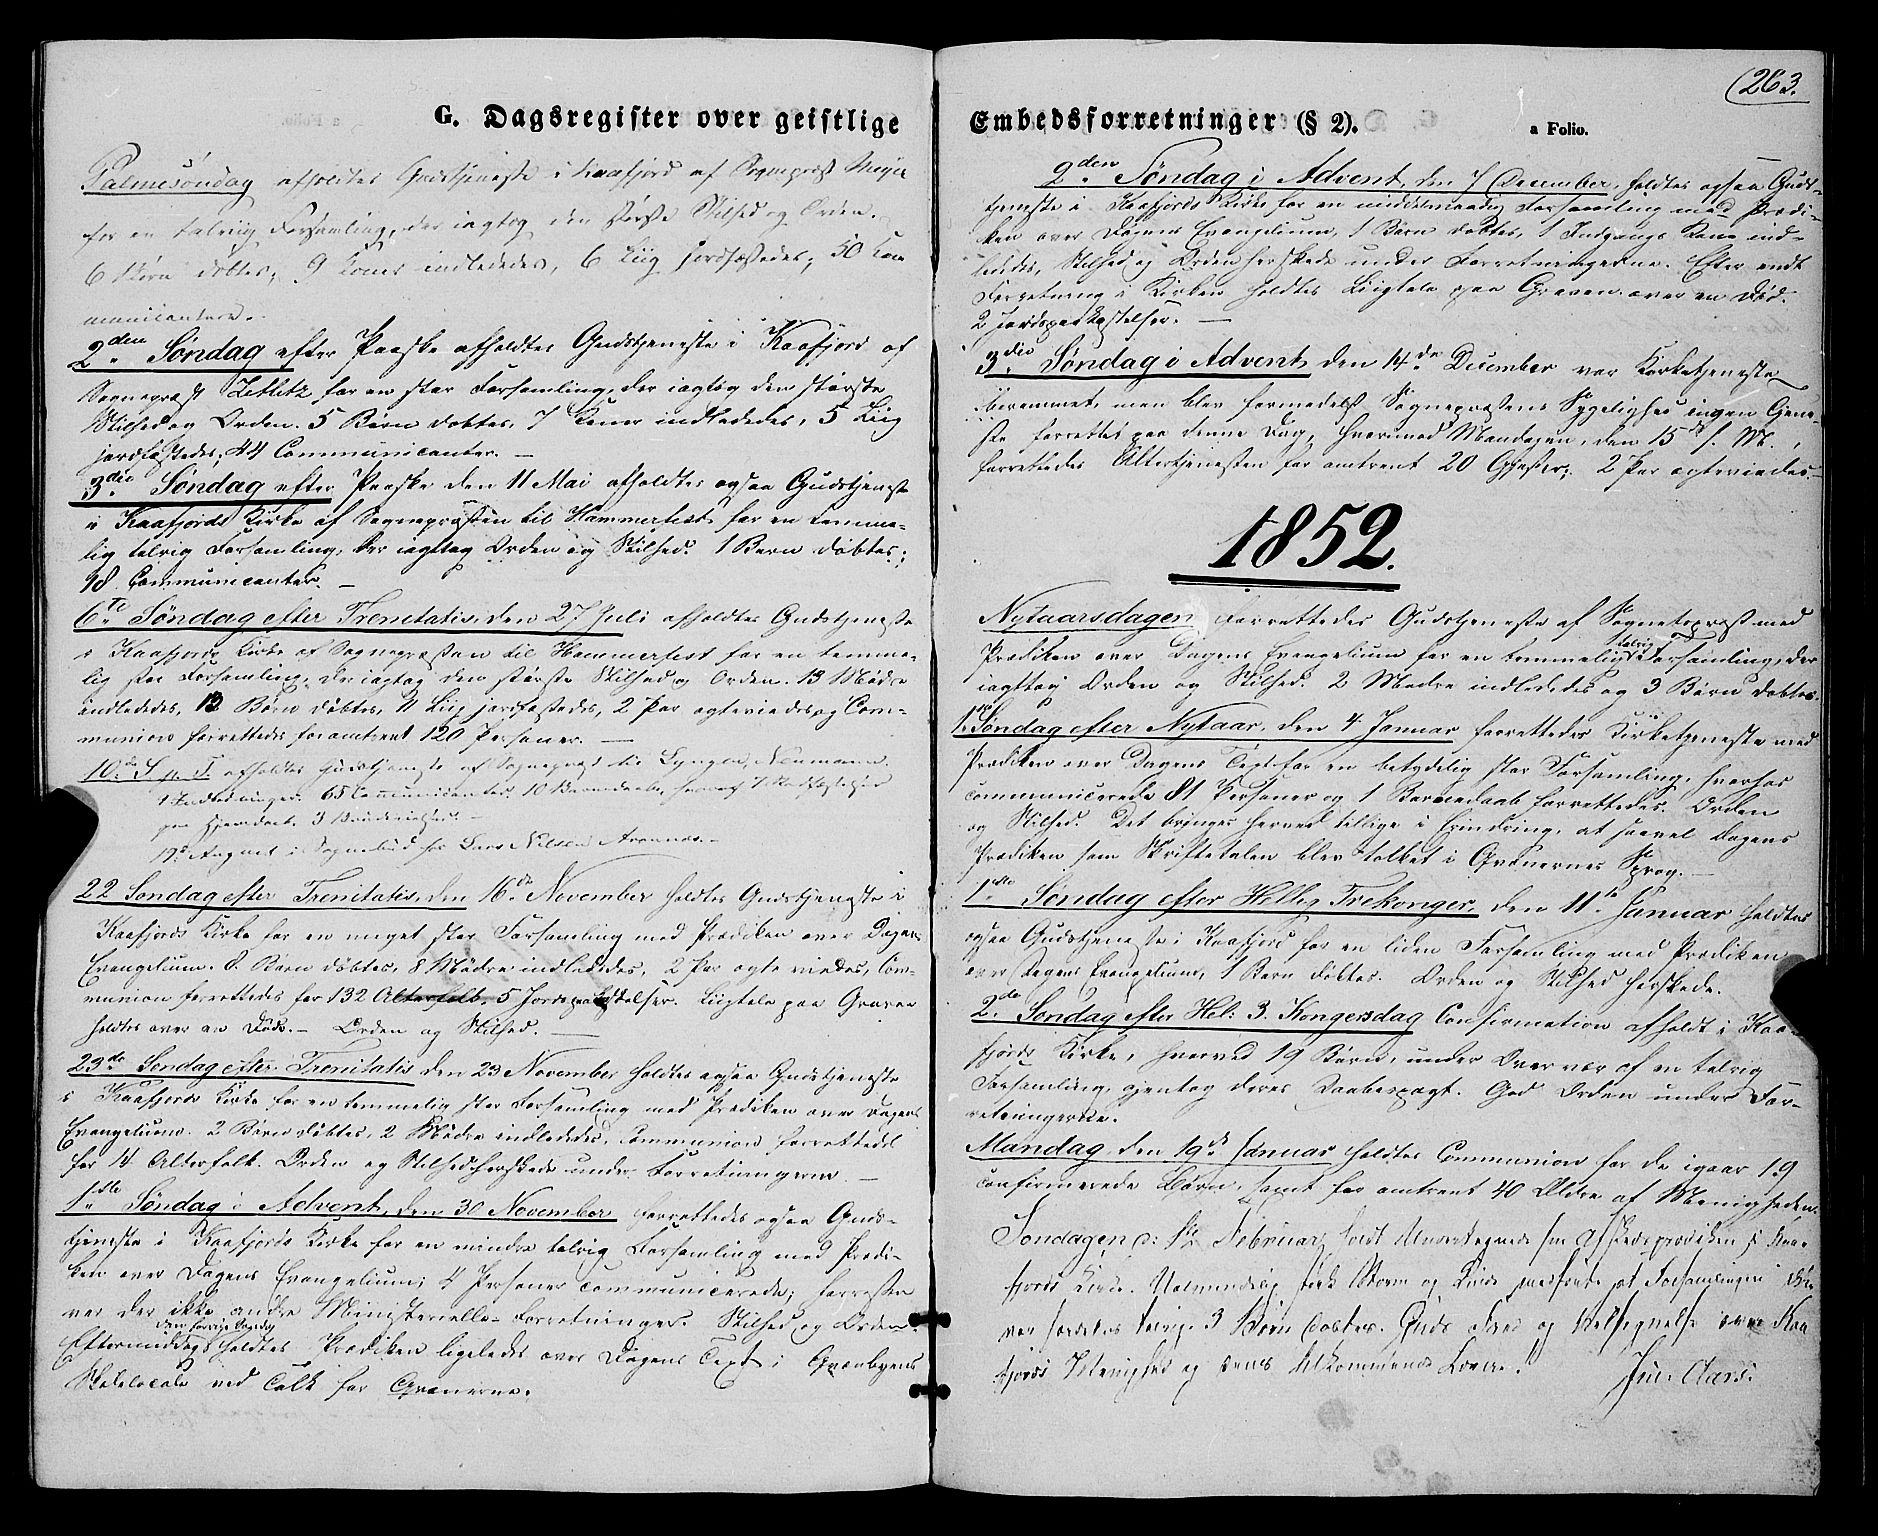 G. Dagsregister over geistlige
Palmesöndag afholdtes Gudstjeneste i Kaafjord af Sognepræst
for en talrig Forsamling, der iagtog den største Stilhed og Orden.
6 Børn døbtes; 9 Koner indlededes, 6 Liig jordfæstedes; 50 Com
municantere.
2den Søndag efter Paaske afholdtes Gudstjeneste i Kaafjord af
Sognepræst Zetlitz for en stor Forsamling, der iagtog den største
Stilhed og Orden. 5 Børn døbtes, 7 Koner indlededes, 5 Liig
jordfæstedes; 44 Communicanter. —
3die Søndag efter Paaske den 11 Mai afholdtes ogsaa Gudstjeneste
i Kaafjords Kirke af Sognepræsten til Hammerfest for en temme-
lig talrig Forsamling, der iagtog Orden og Stilhed. 1 Barn døbtes;
18 Communicanter. —
6te Søndag efter Trenitatis, den 27 Juli afholdtes Gudstjeneste
i Kaafjords Kirke af Sognepræsten til Hammerfest for en temme-
lig stor Forsamling, der iagtog den største Stilhed og Orden. 13 Mødre
indlededes, 13 Børn døbtes, 11 Liig jordfæstedes, 2 Par ægteviedes og Com-
munion forrettedes for omtrent 120 Personer. —
10de S. p. T. afholdtes Gudstjeneste af Sognepræst til Lyngen, Neumann.
65 Communicanter. 10 Barnedaab, heraf 7
paa Hjemdaab. 3
19de August i Sognebud hos Lars Nilsen
22 Søndag efter Trenitatis, den 16de November holdtes Gudstjeneste i
Kaafjords Kirke for en meget stor Forsamling med Prædiken over Dagens
Evangelium. 8 Børn døbtes, 8 Mødre indlededes, 2 Par ægteviedes, Com-
munion forrettedes for 132 Alterfolk. 5 Jordspaakastelser. Liigtale paa Graven
holdtes over en Død. — Orden og Stilhed. —
23de Søndag efter Trenitatis den 23 November holdtes ogsaa Gudstjeneste
i Kaafjords Kirke for en temmelig stor Forsamling med Prædiken over Dagens
Evangelium. 2 Børn døbtes, 2 Mødre indlededes, Communion forrettedes
for 14 Alterfolk. Orden og Stilhed herskede under Forretningerne. —
1ste Søndag i Advent, den 30 November forrettedes ogsaa Guds-
tjeneste i Kaafjords Kirke for en mindre talrig Forsamling med Prædi-
ken over Dagens Evangelium; 4 Personer communicerede; forresten
var der ikke andre Ministerielle-Forretninger. Stilhed og Orden.
den forrige Søndag
Eftermiddags holdtes Prædiken ligeledes over Dagens Text i Qvænbyens
Skolelocale ved Tolk for Qvænerne.
263.
Embedsforretninger (§ 2).
a Folio.
2den Søndag i Advent, den 7 December, holdtes ogsaa Guds-
tjeneste i Kaafjords Kirke for en middelmaadig Forsamling med Prædi-
ken over Dagens Evangelium, 1 Barn døbtes, 1 Indgangs Kone ind-
lededes, Stilhed og Orden herskede under Forretningerne. Efter endt
Forretning i Kirken holdtes Liigtale paa Graven over en Død.
2 Jordspaakastelser. —
3die Søndag i Advent den 14de December var Kirketjeneste
berammet, men blev formedelst Sognepræstens Sygelighed ingen Tjene-
ste forrettet paa denne Dag, hvorimod Mandagen, den 15de s. M.,
forrettedes Altertjenesten for omtrent 20 Gjæster; 2 Par ægteviedes. —
1852.
Nytaarsdagen forrettedes Gudstjeneste af Sognepræst med
talrig
Prædiken over Dagens Evangelium for en temmelig Forsamling, der
iagttog Orden og Stilhed. 2 Mødre indlededes og 3 Børn døbtes.
1. Søndag efter Nytaar, den 4 Januar forrettedes Kirketjeneste med
Prædiken over Dagens Text for en betydelig stor Forsamling, hvorhos
communicerede 81 Personer og 1 Barnedaab forrettedes. Orden
og Stilhed. Det bringes herved tillige i Erindring, at saavel Dagens
Prædiken som Skriftetalen blev tolket i Qvænernes Sprog. —
1ste Søndag efter Hellig Trekonger, den 11te Januar holdtes
ogsaa Gudstjeneste i Kaafjord for en liden Forsamling med Prædiken
over Dagens Evangelium, 1 Barn døbtes. Orden og Stilhed herskede.
2de Søndag efter Hel: 3. Kongersdag Confirmation afholdt i Kaa-
fjords Kirke, hvorved 19 Børn, under Overvær af en talrig
Forsamling, gjentog deres Daabespagt. God Orden under For-
retningerne.
Mandag, den 19de Januar holdtes Communion for de igaar 19
confirmerede Børn, samt for omtrent 40 Ældre af Menigheden.
Søndagen d: Februar, holdt Undertegnede sin Afskedsprædiken i Kaa-
fjords Kirke. Ualmindelig stærk Storm og Kulde medførte at Forsamlingen
var talrig. 3 Børn døbtes. Guds og Velsignelse over Kaa
fjords Menighed og
Jul: Aars.